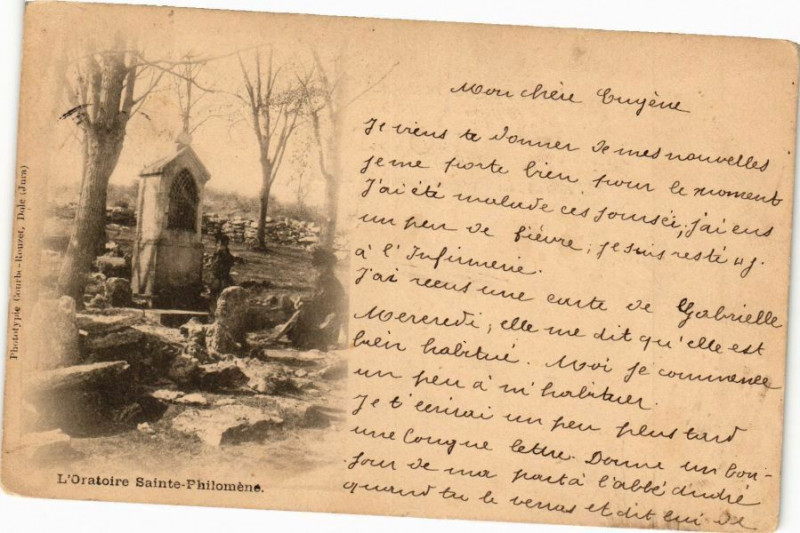 Mon chère Eugène
Je viens te donner de mes nouvelles
je me porte bien pour le moment
J'ai été malade ces jours ci, j'ai eus
un peu de fièvre, je suis resté 4 j.
à l'Infirmerie.
J'ai recus une carte de Gabrielle
Mercredi, elle me dit qu'elle est
bien habitué. Moi je commence
un peu à m'habituer.
Je t'écrirai un peu plus tard
une longue lettre. Donne un bon-
jour de ma part à l'abbé André
quand tu le verras et dit lui de
L'Oratoire Sainte-Philomène.
Phototypie Courbe-Rouzet, Dole (Jura)